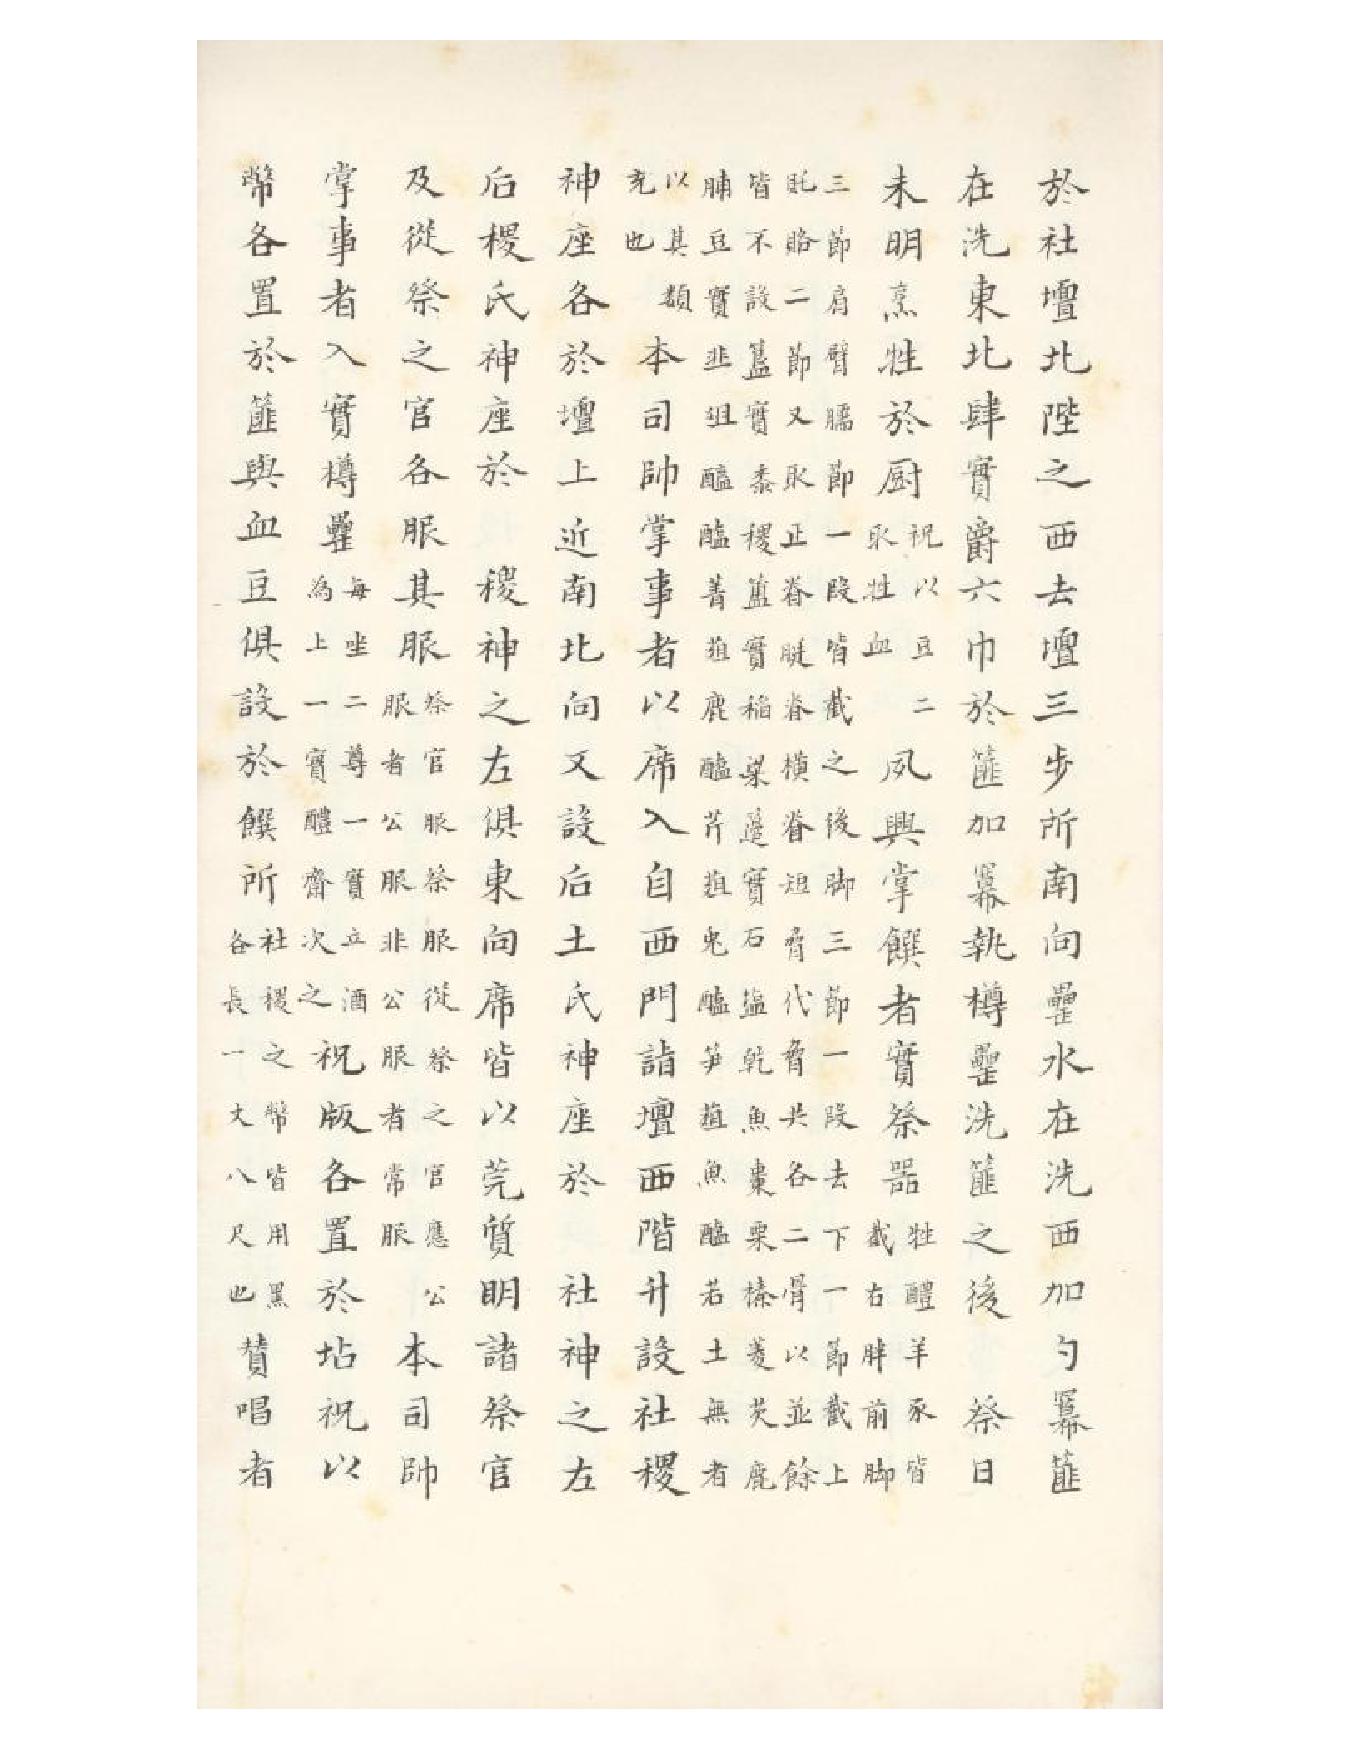 於社壇北陛之西去壇三步所南向罍水在洗西加勺羃篚
在洗東北肆實爵六巾於篚加羃執樽罍洗篚之後　祭日
未明烹牲於厨祝以豆二取牲血夙興掌饌者實祭器牲醴羊豕皆截右胖前脚
三節肩臂臑節一段皆截之後脚三節一段去下一節截上
肫胳二節又取正脊脡脊橫脊短脅代脅共各二骨以並餘
皆不設簋實黍稷簠實稻粱籩實石塩乾魚棗栗榛菱芡鹿
脯豆實韭俎醓醢菁葅鹿醢芹葅兎醢笋葅魚醢若土無者
以其類充也本司帥掌事者以席入自西門詣壇西階升設社稷
神座各於壇上近南北向又設后土氏神座於　社神之左
后稷氏神座於　稷神之左俱東向席皆以莞質明諸祭官
及從祭之官各服其服祭官服祭服從祭之官應公服者公服非公服者常服本司帥
掌事者入實樽罍每坐二尊一實立酒為上一實醴齊次之祝版各置於坫祝以
幣各置於篚與血豆俱設於饌所社稷之幣皆用黑各長一丈八尺也賛唱者